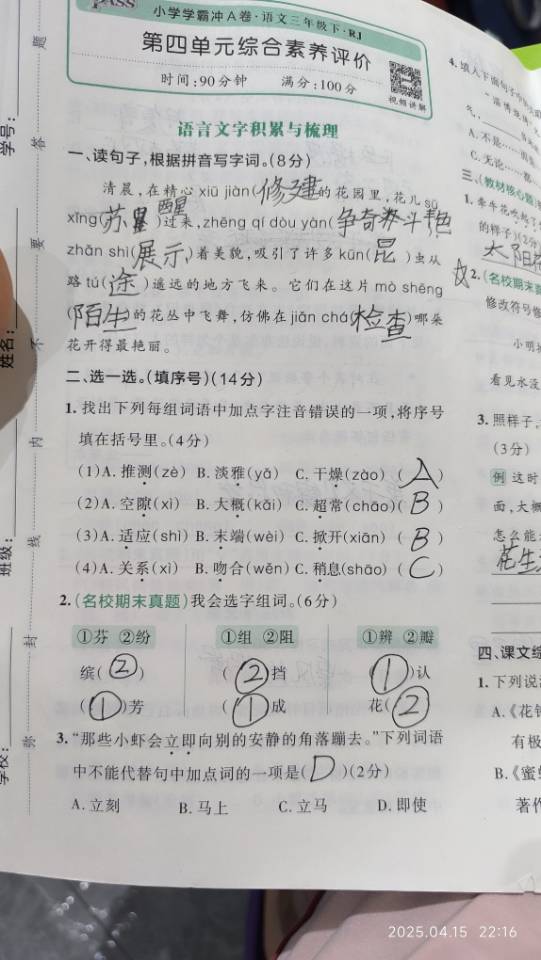 PASS
小学学霸冲A卷·语文三年级下·RJ
第四单元综合素养评价
时间:90分钟 满分:100分
视频讲解
语言文字积累与梳理
一、读句子,根据拼音写字词。(8分)
清晨,在精心 xiū jiàn(修建)的花园里,花儿 sū
xǐng(苏醒)过来,zhēng qí dòu yàn(争奇斗艳)
zhǎn shì(展示)着美貌,吸引了许多 kūn(昆)虫从
路 tú(途)遥远的地方飞来。它们在这片 mò shēng
(陌生)的花丛中飞舞,仿佛在 jiǎn chá(检查)哪朵
花开得最艳丽。
二、选一选。(填序号)(14分)
1.找出下列每组词语中加点字注音错误的一项,将序号
填在括号里。(4分)
(1)A.推测(zè) B.淡雅(yǎ) C.干燥(zào) (A)
(2)A.空隙(xì) B.大概(kǎi) C.超常(chāo)(B)
(3)A.适应(shì) B.末端(wèi) C.掀开(xiān) (B)
(4)A.关系(xì) B.吻合(wěn) C.稍息(shāo) (C)
2.(名校期末真题)我会选字组词。(6分)
①芬 ②纷 ①组 ②阻 ①辨 ②瓣
缤(②) (②)挡 (①)认
(①)芳 (①)成 花(②)
3.“那些小虾会立即向别的安静的角落蹦去。”下列词语
中不能代替句中加点词的一项是(D)(2分)
A.立刻 B.马上 C.立马 D.即使
学校:
班级:
姓名:
学号:
弥 封 线 内 不 要 答 题
4.填入下面句
气,
A.不是……而
C.无论……都
三、(教材核心题
1.牵牛花吹起了
的样子)(2分)
太阳花
2.(名校期末真
修改符号修
小明
看见水没
3.照样子,
(3分)
例 这时
面,大概
怎么能
花生
四、课文综
1.下列说
A.《花钟
有极
B.《蜜蜂
著作
2025.04.15 22:16